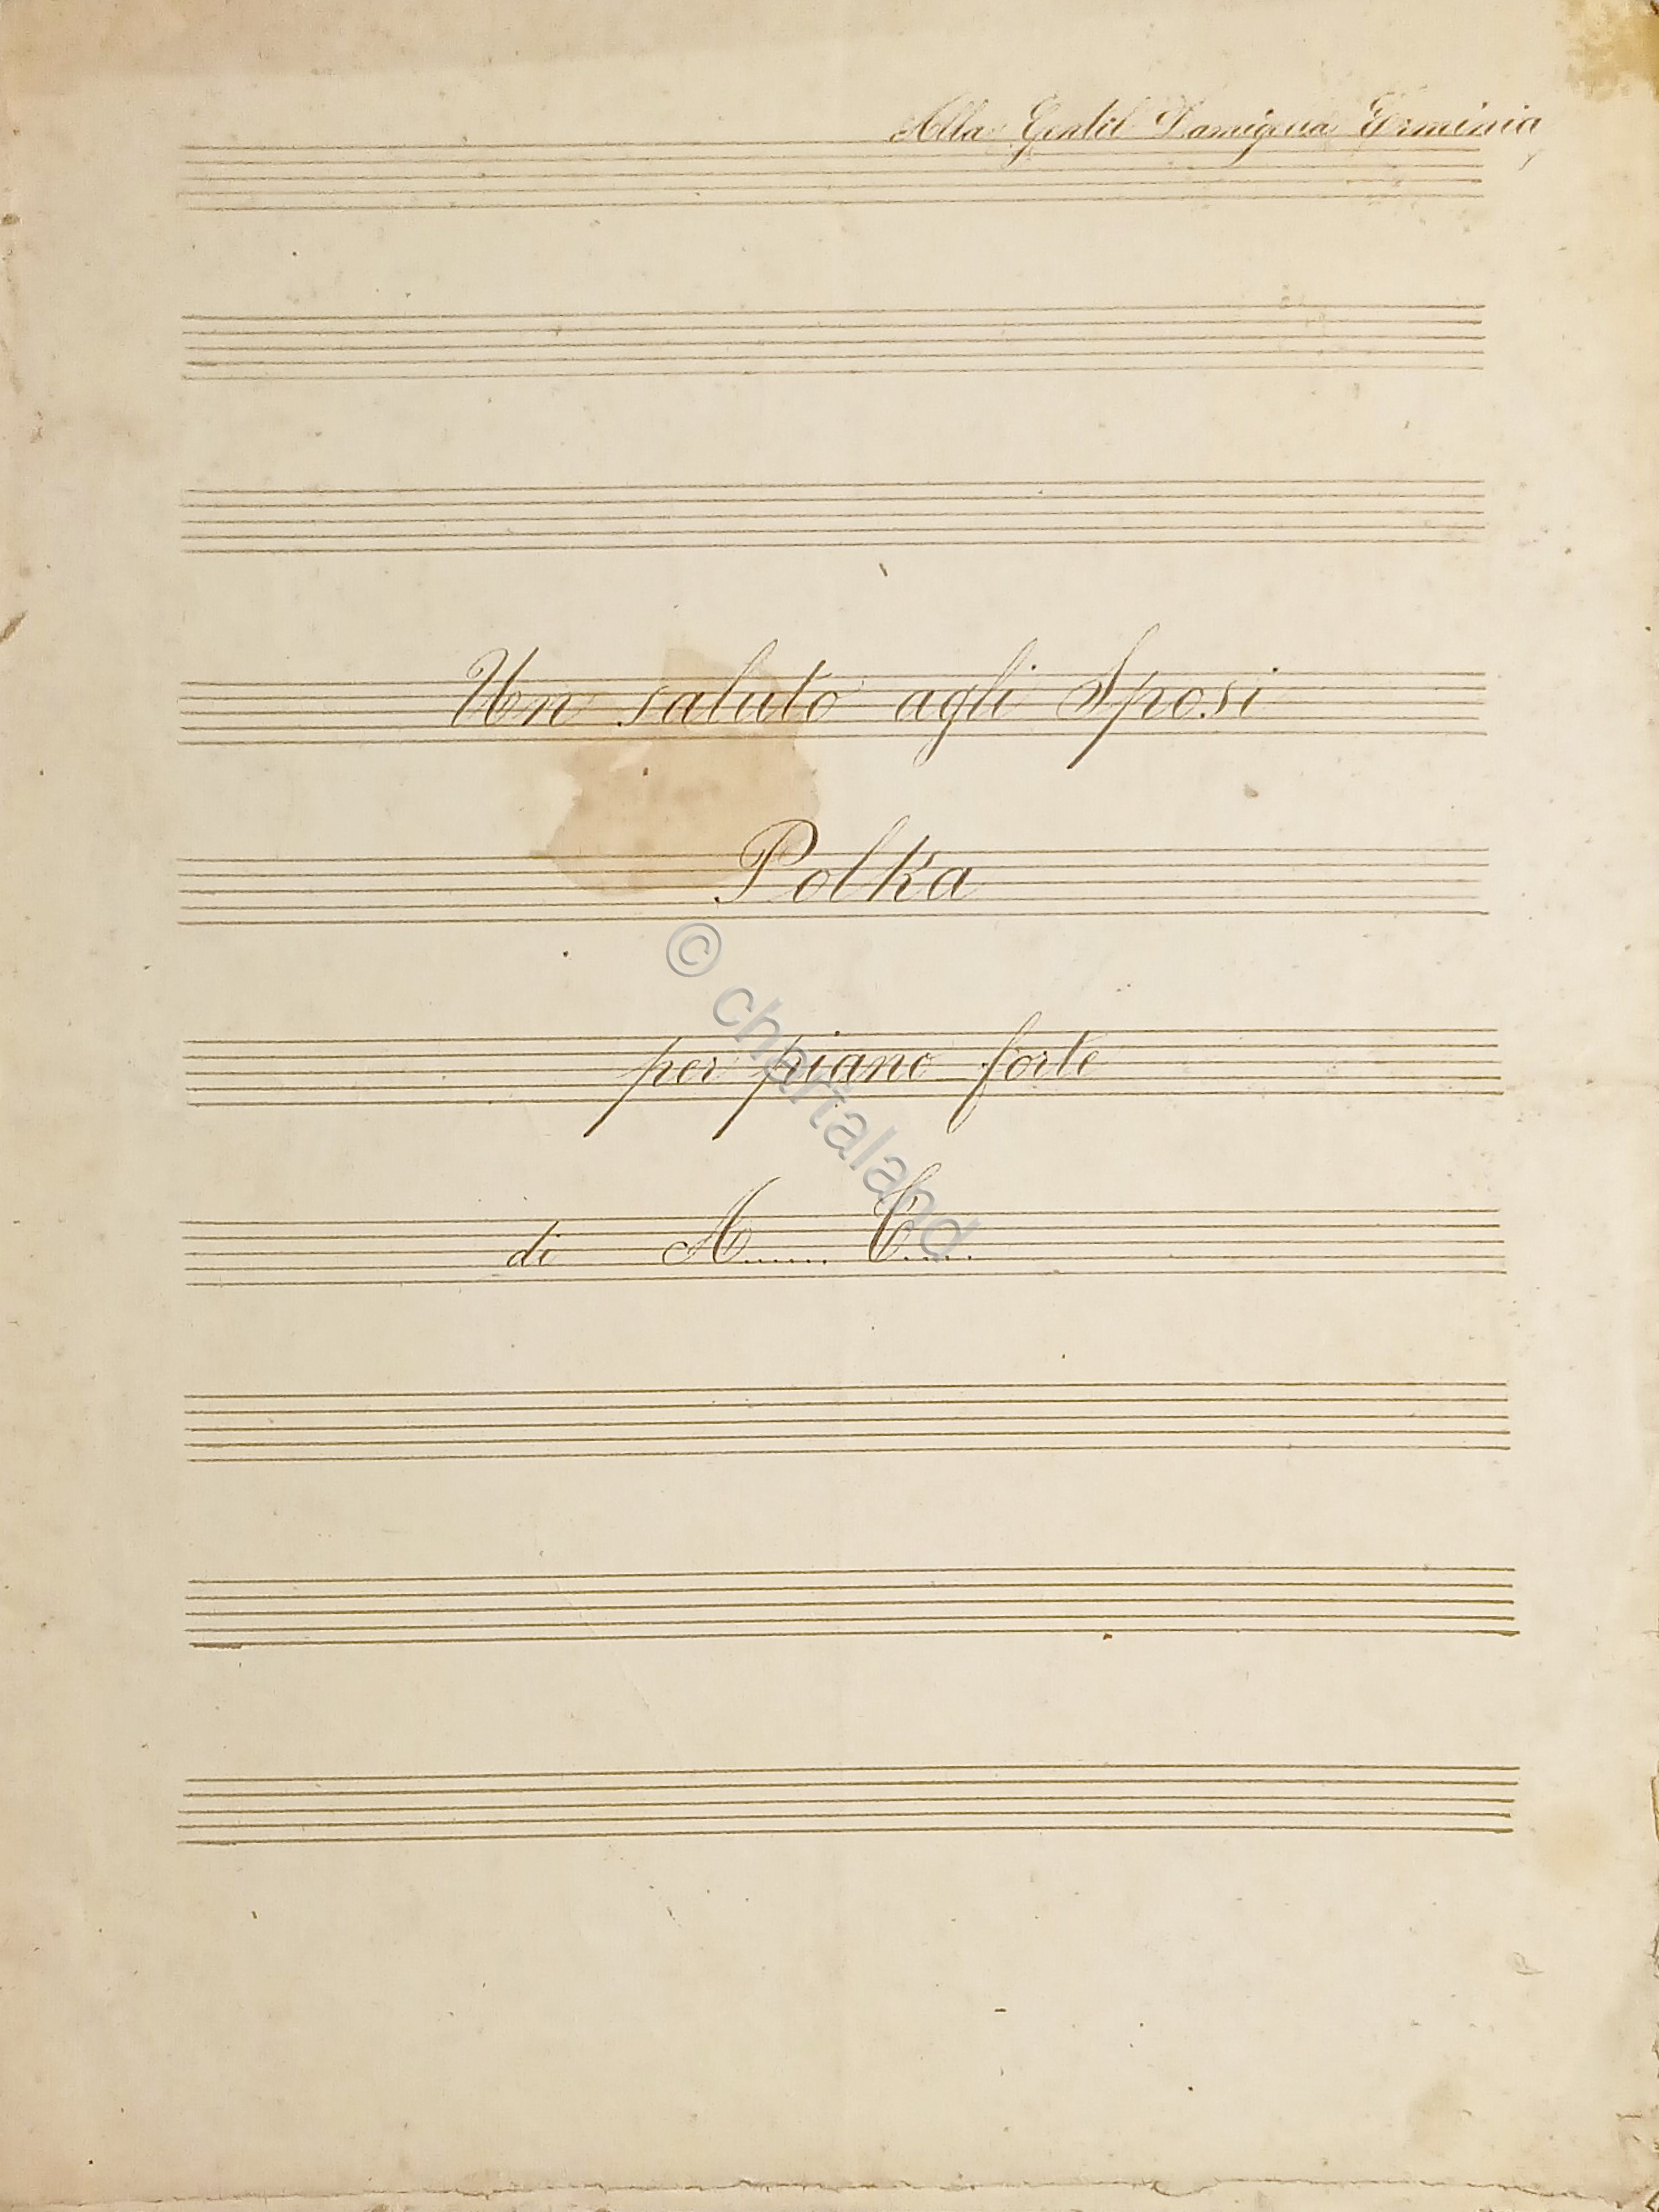 Alla Gentil Damigella Erminia
Un saluto agli Sposi
Polka
per piano forte
di A...... C.....
© chartaland